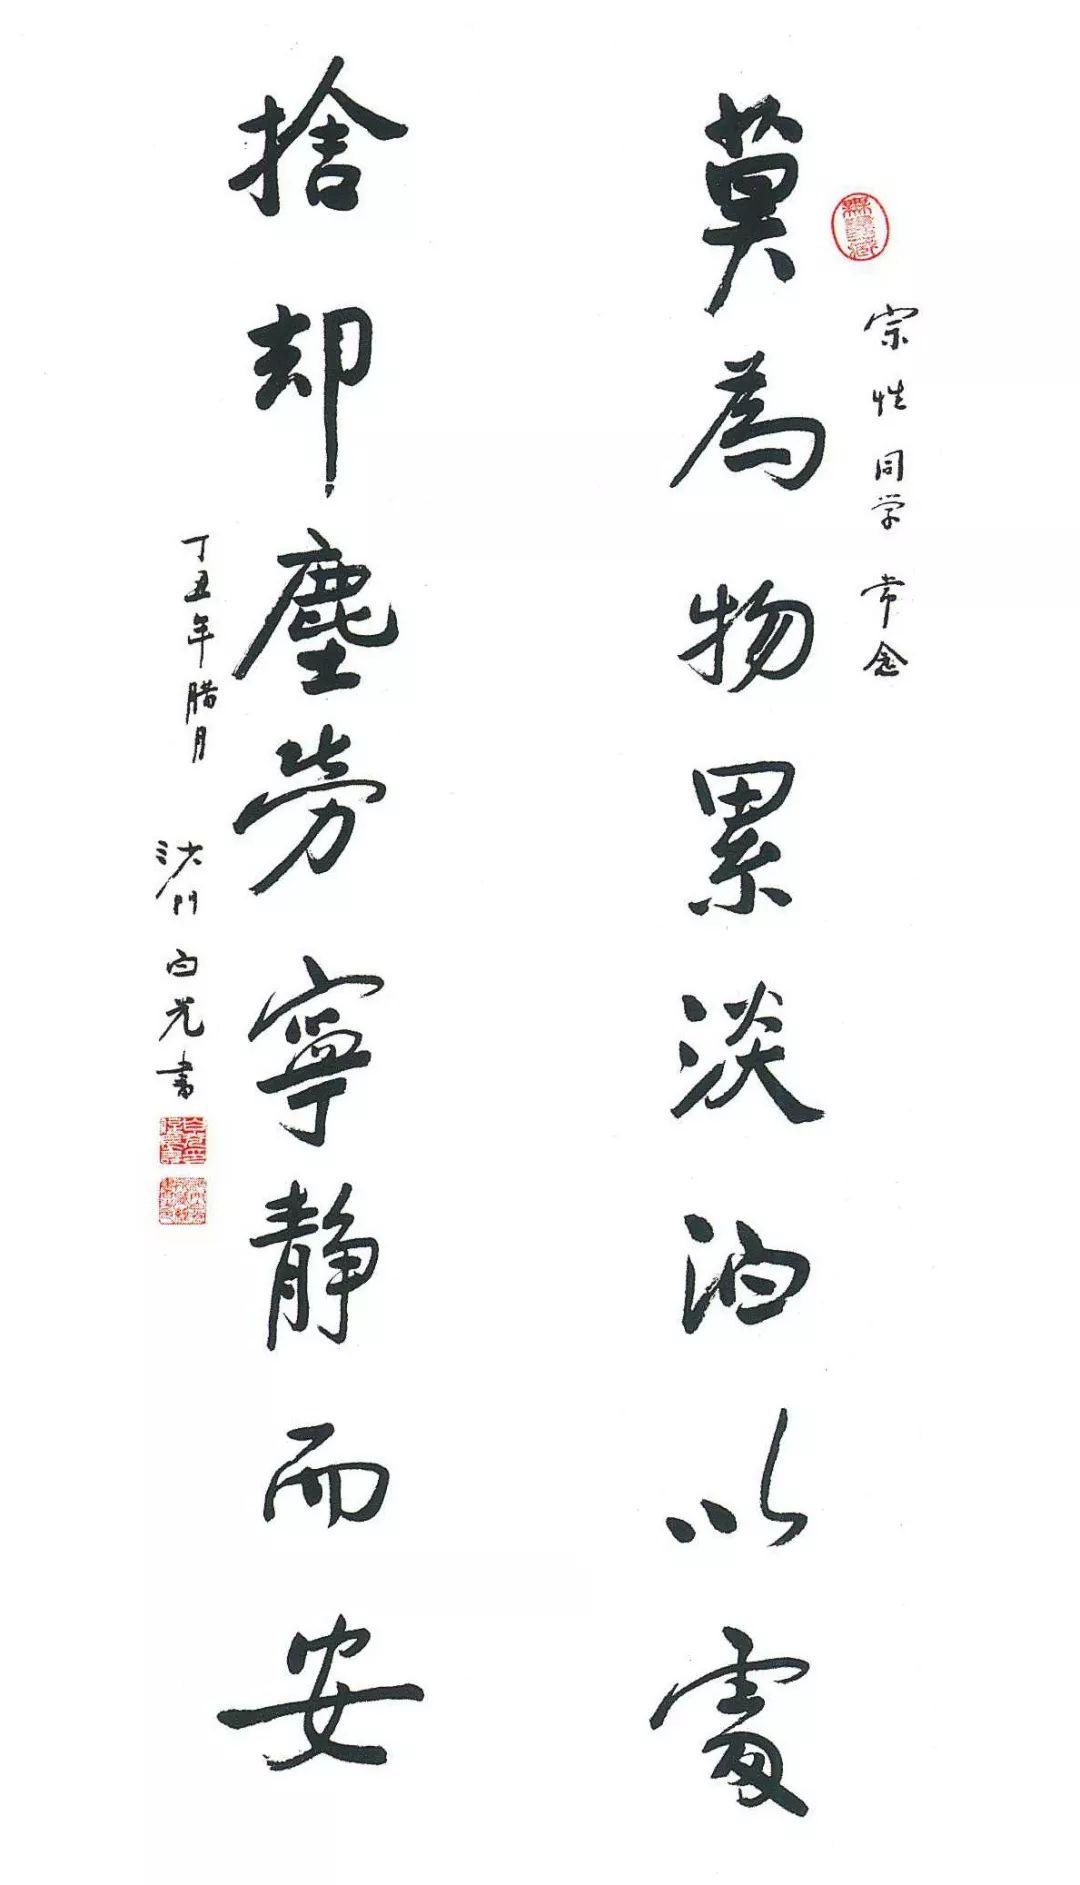 宗性同学 常念
莫為物累淡泊以處
捨却塵勞寧静而安
丁丑年腊月 沙門白光書